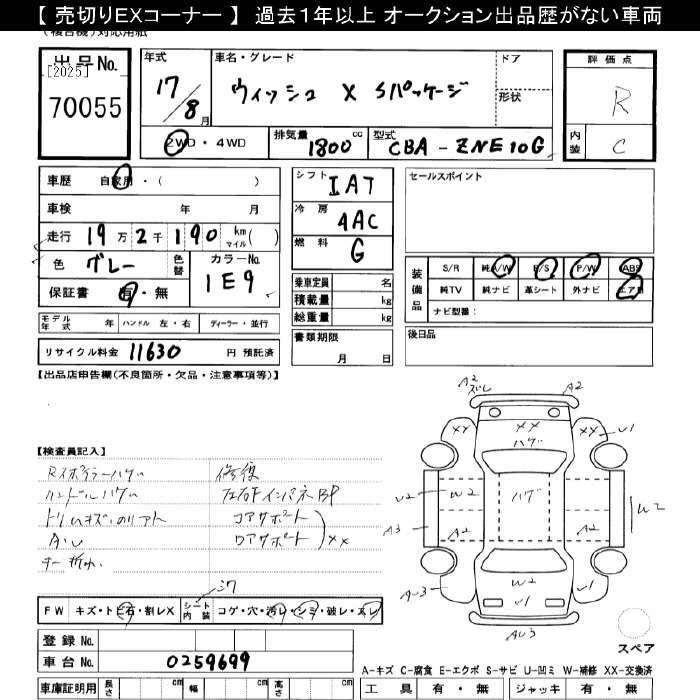 【 売切りEXコーナー 】 過去1年以上 オークション出品歴がない車両
(複合機)対応用紙
出品No.
[2025]
70055
年式
17/8月
車名・グレード
ウィッシュ X Sパッケージ
ドア
形状
評価点
R
内装
C
2WD・4WD
排気量
1800 cc
型式
CBA - ZNE10G
車歴 自家用・( )
車検 年 月
走行 19万2千190 km マイル( )
色 グレー
色替
カラーNo.
1E9
保証書 有・無
モデル年式 年
ハンドル 左・右
ディーラー・並行
リサイクル料金 11630 円 預託済
シフト IAT
冷房 AAC
燃料 G
乗車定員 名
積載量 kg
総重量 kg
書類期限
月 日
セールスポイント
装備品
S/R 純A/W P/S P/W ABS
純TV 純ナビ 革シート 外ナビ エアB
ナビ型番:
後日品
【出品店申告欄(不良箇所・欠品・注意事項等)】
【検査員記入】
Rスポイラーハゲ
修復
ハンドルハゲ
左右FインパネBP
コアサポート
ロアサポート
XX
A2
ズレ
A2
XX
XX
XX
U1
ハゲ
U2
W2
ハゲ
W2
A3
A2
A2
W2
U1
U1
AU3
AU3
シワ
FW キズ・トビ石・割レX
シート内装
コゲ・穴・汚レ・シミ・破レ・スレ
登録No.
車台No. 0259699
車庫証明用 長さ cm 幅 cm 高さ cm
スペア
A-キズ C-腐食 E-エクボ S-サビ U-凹ミ W-補修 XX-交換済
工具 有・無 ジャッキ 有・無